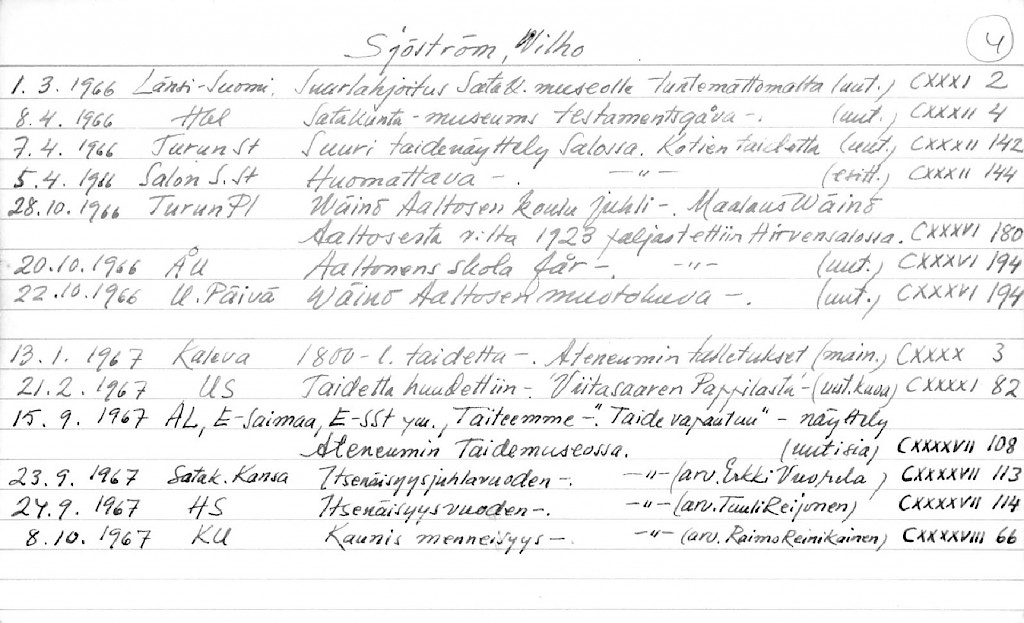 Sjöström, Vilho
4
1.3.1966 Länsi-Suomi. Suurlahjoitus Satak. museolle tuntemattomalta (uut.) CXXXI 2
8.4.1966 Hbl Satakunta-museums testamentsgåva -. (uut.) CXXXII 4
7.4.1966 TurunSt Suuri taidenäyttely Salossa. Kotien taidetta (uut.) CXXXII 142
5.4.1966 Salon S.St Huomattava -. -"- (esitt.) CXXXII 144
28.10.1966 TurunPl Wäinö Aaltosen koulu juhli -. Maalaus Wäinö
Aaltosesta v:lta 1923 paljastettiin Hirvensalossa. CXXXVI 180
20.10.1966 ÅU Aaltonens skola får -. -"- (uut.) CXXXVI 194
22.10.1966 U.Päivä Wäinö Aaltosen muotokuva -. (uut.) CXXXVI 194
13.1.1967 Kaleva 1800-l. taidetta -. Ateneumin talletukset (main.) CXXXX 3
21.2.1967 US Taidetta huudettiin - "Viitasaaren Pappilasta" - (uut.kuva) CXXXXI 82
15.9.1967 AL, E-Saimaa, E-SSt ym. "Taiteemme -". "Taide vapautuu" - näyttely
Ateneumin Taidemuseossa. (uutisia) CXXXXVII 108
23.9.1967 Satak. Kansa Itsenäisyysjuhlavuoden -. -"- (arv. Erkki Vuorela) CXXXXVII 113
24.9.1967 HS Itsenäisyysvuoden -. -"- (arv. Tuuli Reijonen) CXXXXVII 114
8.10.1967 KU Kaunis menneisyys -. -"- (arv. Raimo Reinikainen) CXXXXVIII 66